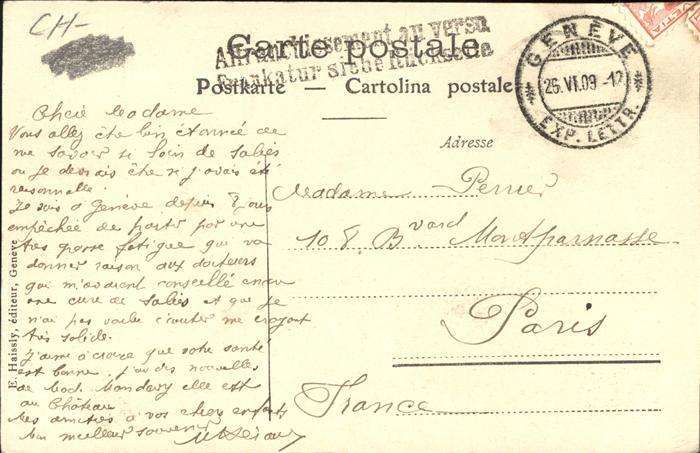 CH-
Carte postale
Affranchissement au verso
Frankatur siehe Rückseite
Postkarte — Cartolina postale
GENÈVE
25.VI.09.-12
EXP. LETTR.
Adresse
Chère Madame
Vous allez être bien étonnée de
me savoir si loin de Salies
où je devrais être si j'avais été
raisonnable.
Je suis à Genève depuis jours
empêchée de partir par une
très grosse fatigue qui va
donner raison aux docteurs
qui m'avaient conseillé encore
une cure de Salies et que je
n'ai pas voulu écouter me croyant
très solide.
J'aime à croire que votre santé
est bonne. J'ai des nouvelles
de Mad. elle est
au Château
Mes amitiés à vos chers enfants
bon meilleur souvenir
Madame Perrier
Bvard Montparnasse
Paris
France
E. Haissly, éditeur, Genève